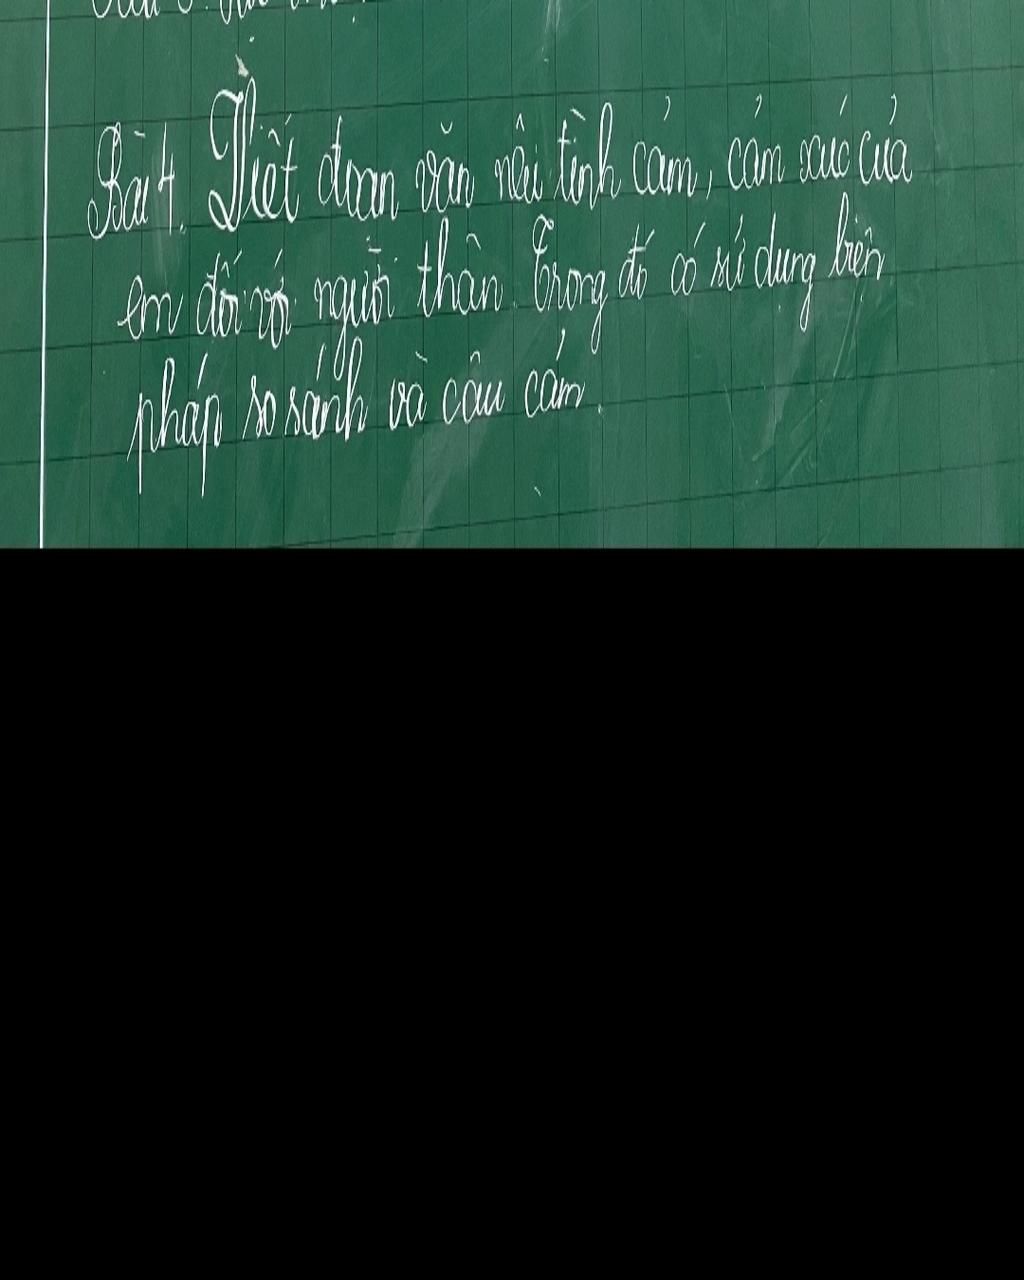 Bài 4. Viết đoạn văn nêu tình cảm, cảm xúc của
em đối với người thân. Trong đó có sử dụng biện
pháp so sánh và câu cảm.